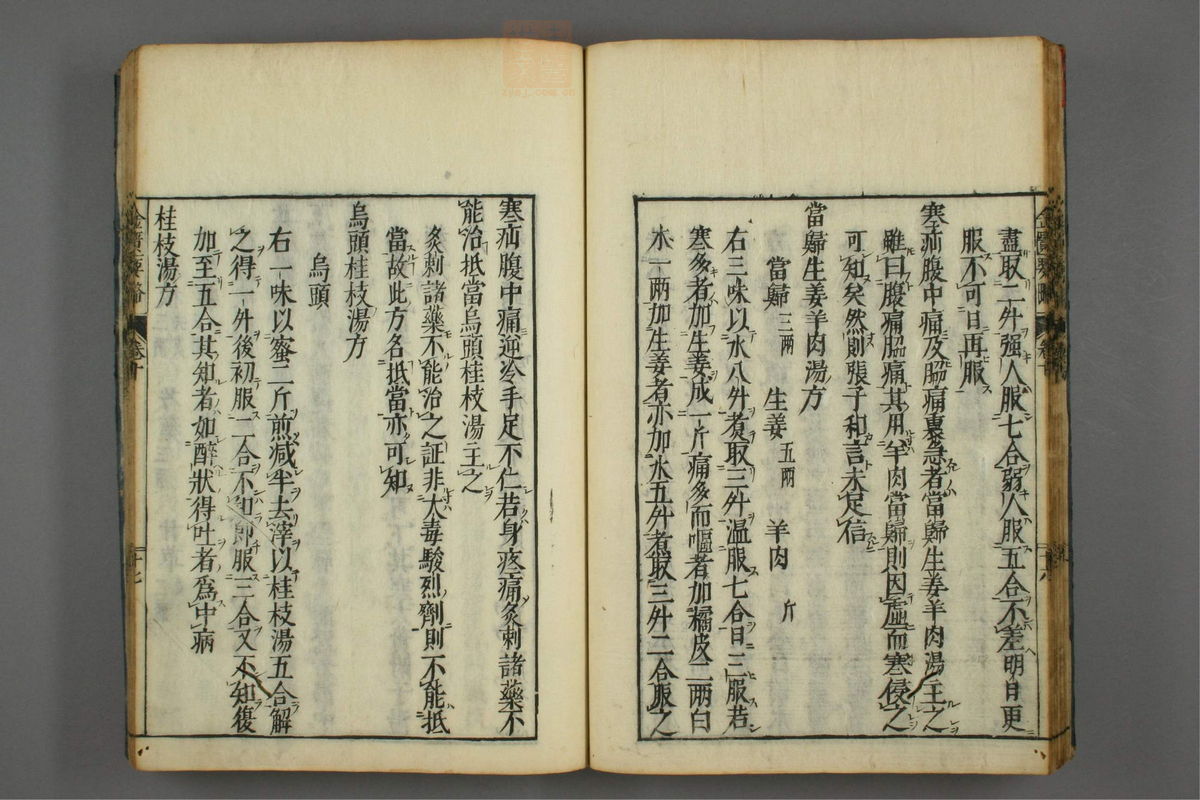 盡取二升强人服七合弱人服五合不差明日更
服不可日再服
寒疝腹中痛及脇痛裏急者當歸生姜羊肉湯主之
雖曰腹痛脇痛其用羊肉當歸則因虛而寒侵之
可知矣然則張子和言未足信
當歸生姜羊肉湯方
當歸 三兩 生姜 五兩 羊肉 斤
右三味以水八升煑取三升温服七合日三服若
寒多者加生姜成一斤痛多而嘔者加橘皮二兩白
朮一兩加生姜者亦加水五升煑取三升二合服之
寒疝腹中痛逆冷手足不仁若身疼痛灸刺諸藥不
能治抵當烏頭桂枝湯主之
灸刺諸藥不能治之証非大毒駿烈劑則不能抵
當故此方名抵當亦可知
烏頭桂枝湯方
烏頭
右一味以蜜二斤煎减半去滓以桂枝湯五合解
之得一升後初服二合不知卽服三合又不知復
加至五合其知者如醉狀得吐者爲中病
桂枝湯方
金匱要略 卷十 十七